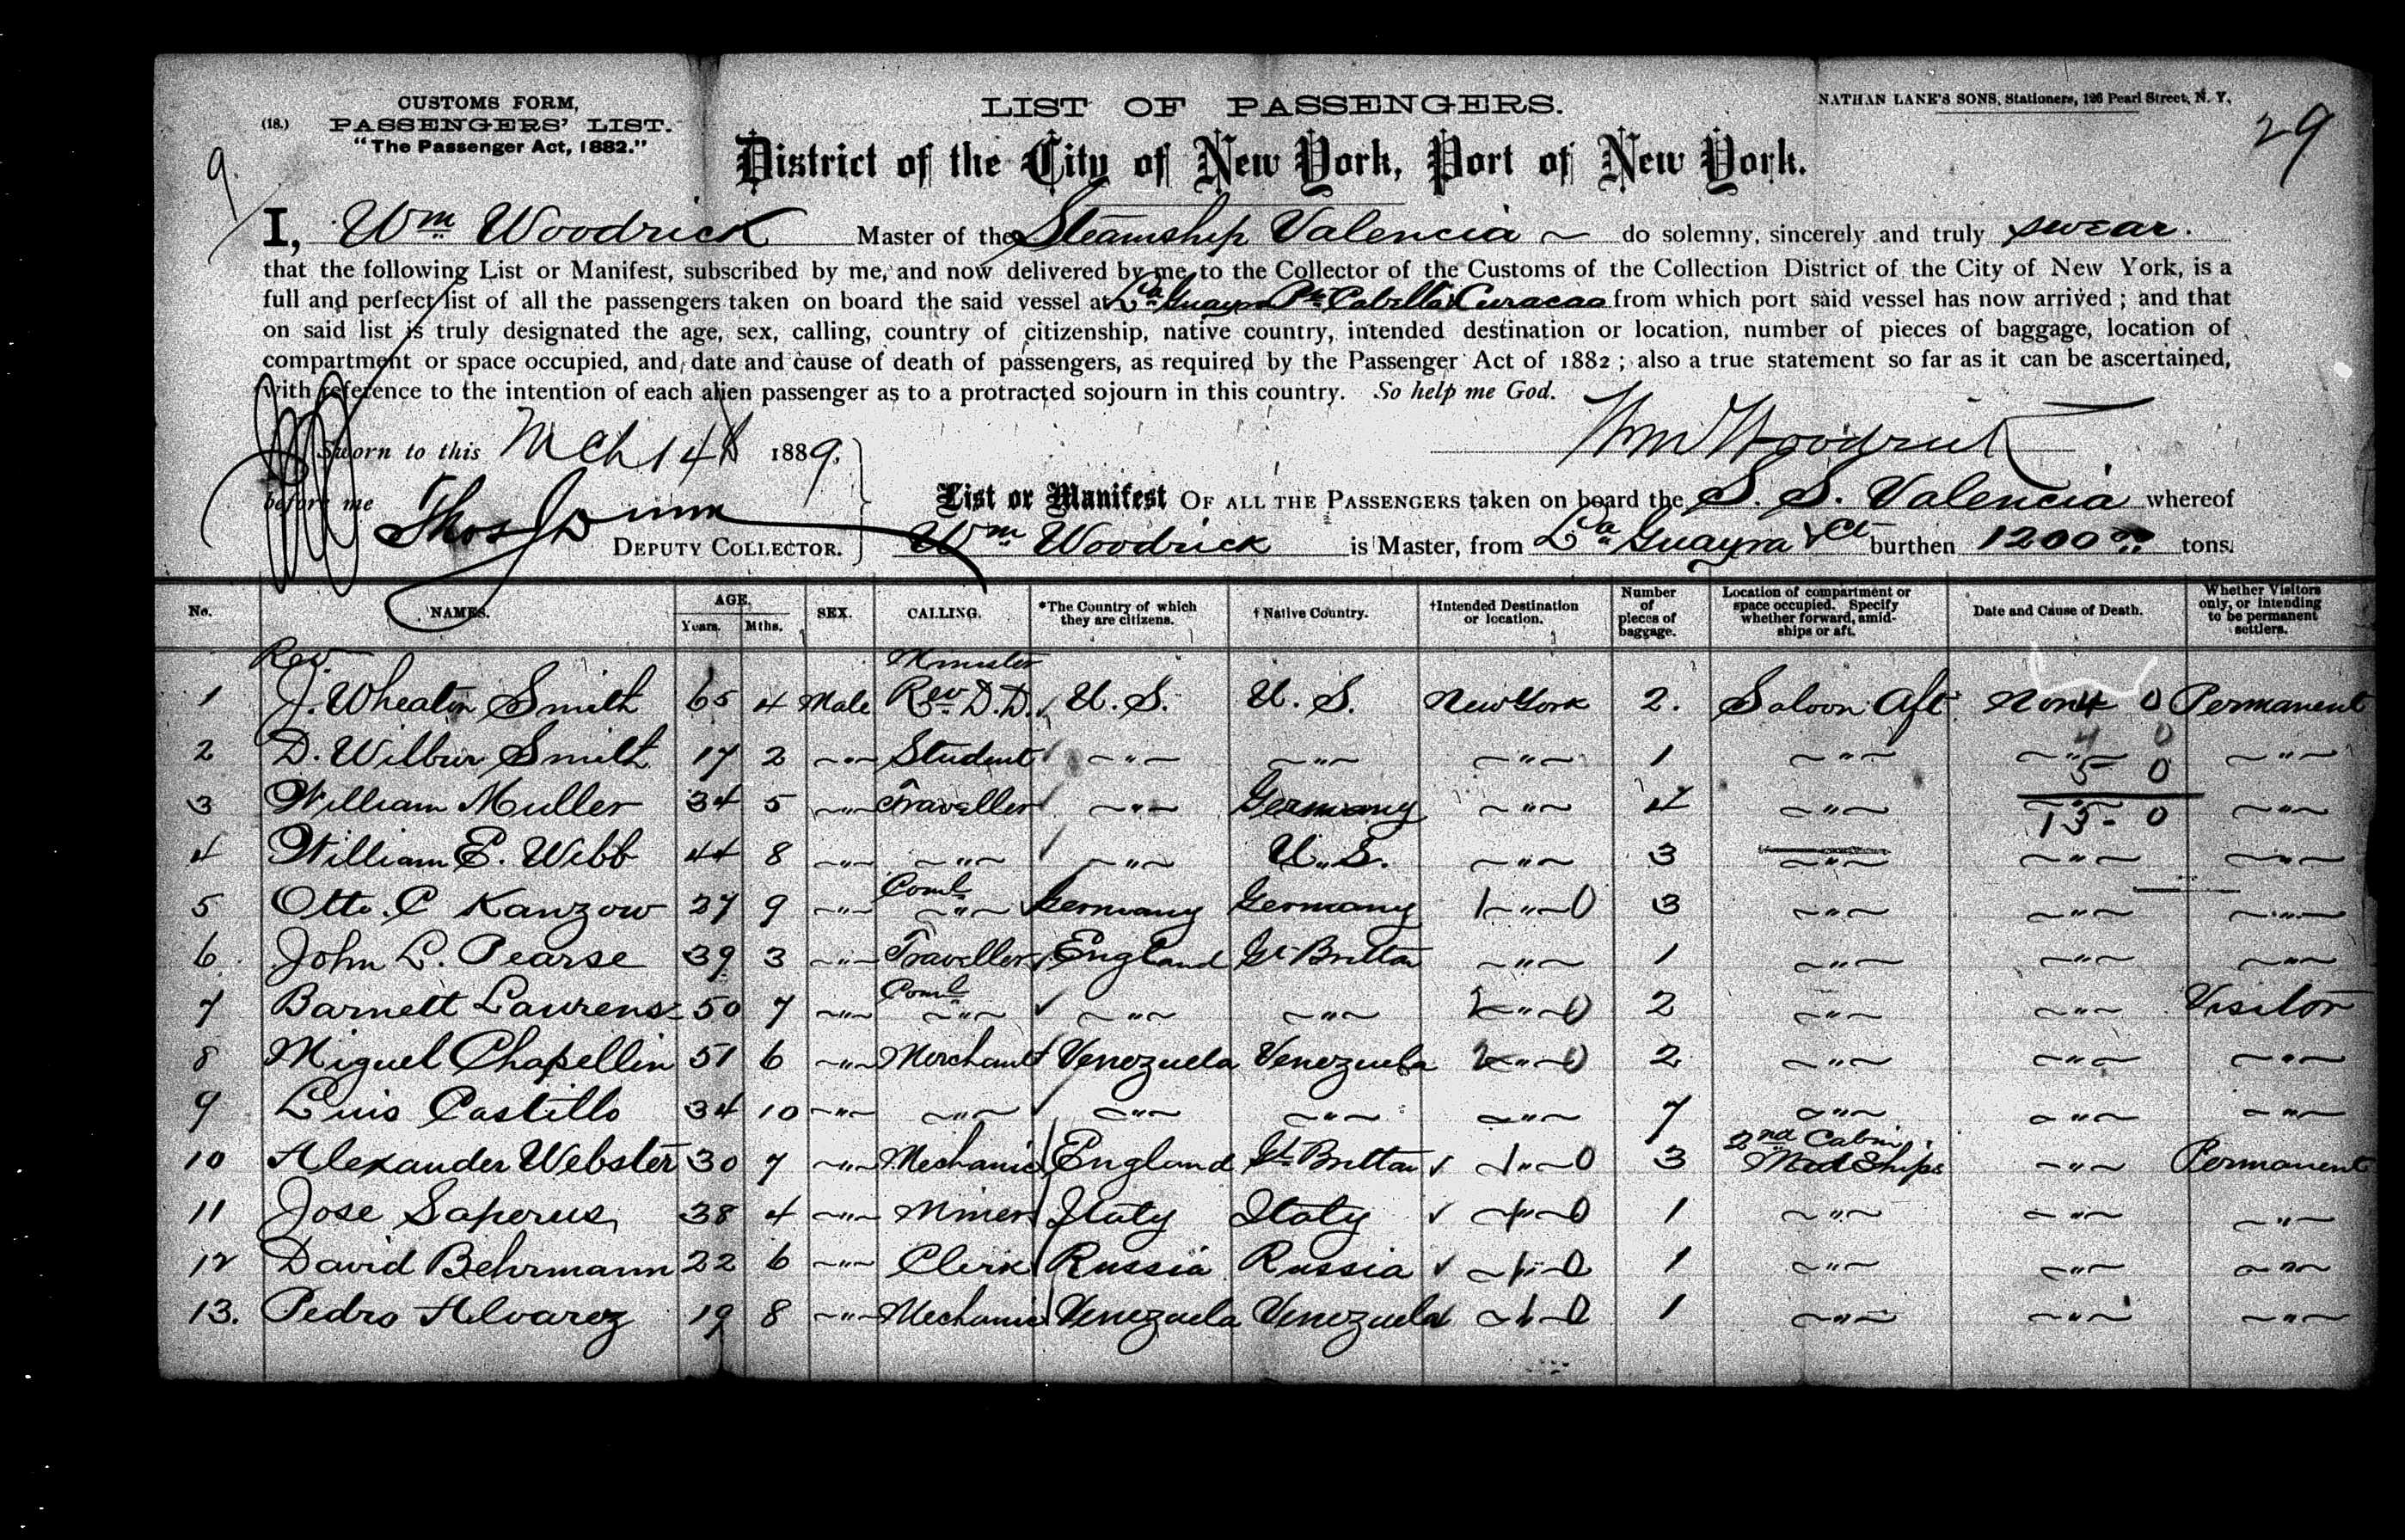 CUSTOMS FORM,
(18.) PASSENGERS' LIST.
"The Passenger Act, 1882."
LIST OF PASSENGERS.
NATHAN LANE'S SONS, Stationers, 126 Pearl Street, N. Y.
29
9
District of the City of New York, Port of New York.
I, Wm Woodrick Master of the Steamship Valencia ~ do solemny, sincerely and truly swear.
that the following List or Manifest, subscribed by me, and now delivered by me to the Collector of the Customs of the Collection District of the City of New York, is a
full and perfect list of all the passengers taken on board the said vessel at La Guayra Pto Cabello & Curacao from which port said vessel has now arrived ; and that
on said list is truly designated the age, sex, calling, country of citizenship, native country, intended destination or location, number of pieces of baggage, location of
compartment or space occupied, and date and cause of death of passengers, as required by the Passenger Act of 1882 ; also a true statement so far as it can be ascertained,
with reference to the intention of each alien passenger as to a protracted sojourn in this country. So help me God.
Sworn to this Mch 14th 1889,
Wm Woodrick
before me Thos Dunn DEPUTY COLLECTOR.
List or Manifest OF ALL THE PASSENGERS taken on board the S. S. Valencia whereof
Wm Woodrick is Master, from La Guayra &ct burthen 1200 00 tons.
No. NAMES. AGE. Years. Mths. SEX. CALLING. *The Country of which they are citizens. † Native Country. †Intended Destination or location. Number of pieces of baggage. Location of compartment or space occupied. Specify whether forward, amidships or aft. Date and Cause of Death. Whether Visitors only, or intending to be permanent settlers.
1 Rev. J. Wheaton Smith 65 4 Male Minister Rev. D.D. U. S. U. S. New York 2. Saloon Aft None Permanent
2 D. Wilbur Smith 17 2 ~"~ Student ~"~ ~"~ ~"~ 1 ~"~ ~"~ ~"~
3 William Muller 34 5 ~"~ Traveller ~"~ Germany ~"~ 4 ~"~ ~"~ ~"~
4 William E. Webb 44 8 ~"~ ~"~ ~"~ U. S. ~"~ 3 ~"~ ~"~ ~"~
5 Otto. C Kanzow 27 9 ~"~ Coml ~"~ Germany Germany ~"~ 3 ~"~ ~"~ ~"~
6 John L. Pearse 39 3 ~"~ Traveller England Gt Brittan ~"~ 1 ~"~ ~"~ ~"~
7 Barnett Laurens 50 7 ~"~ Coml ~"~ ~"~ ~"~ ~"~ 2 ~"~ ~"~ Visitor
8 Miguel Chapellin 51 6 ~"~ Merchant Venezuela Venezuela ~"~ 2 ~"~ ~"~ ~"~
9 Luis Castillo 34 10 ~"~ ~"~ ~"~ ~"~ ~"~ 7 ~"~ ~"~ ~"~
10 Alexander Webster 30 7 ~"~ Mechanic England Gt Brittan ~"~ 3 2nd Cabin Mid Ships ~"~ Permanent
11 Jose Saperus 38 4 ~"~ Miner Italy Italy ~"~ 1 ~"~ ~"~ ~"~
12 David Behrmann 22 6 ~"~ Clerk Russia Russia ~"~ 1 ~"~ ~"~ ~"~
13. Pedro Alvarez 19 8 ~"~ Mechanic Venezuela Venezuela ~"~ 1 ~"~ ~"~ ~"~